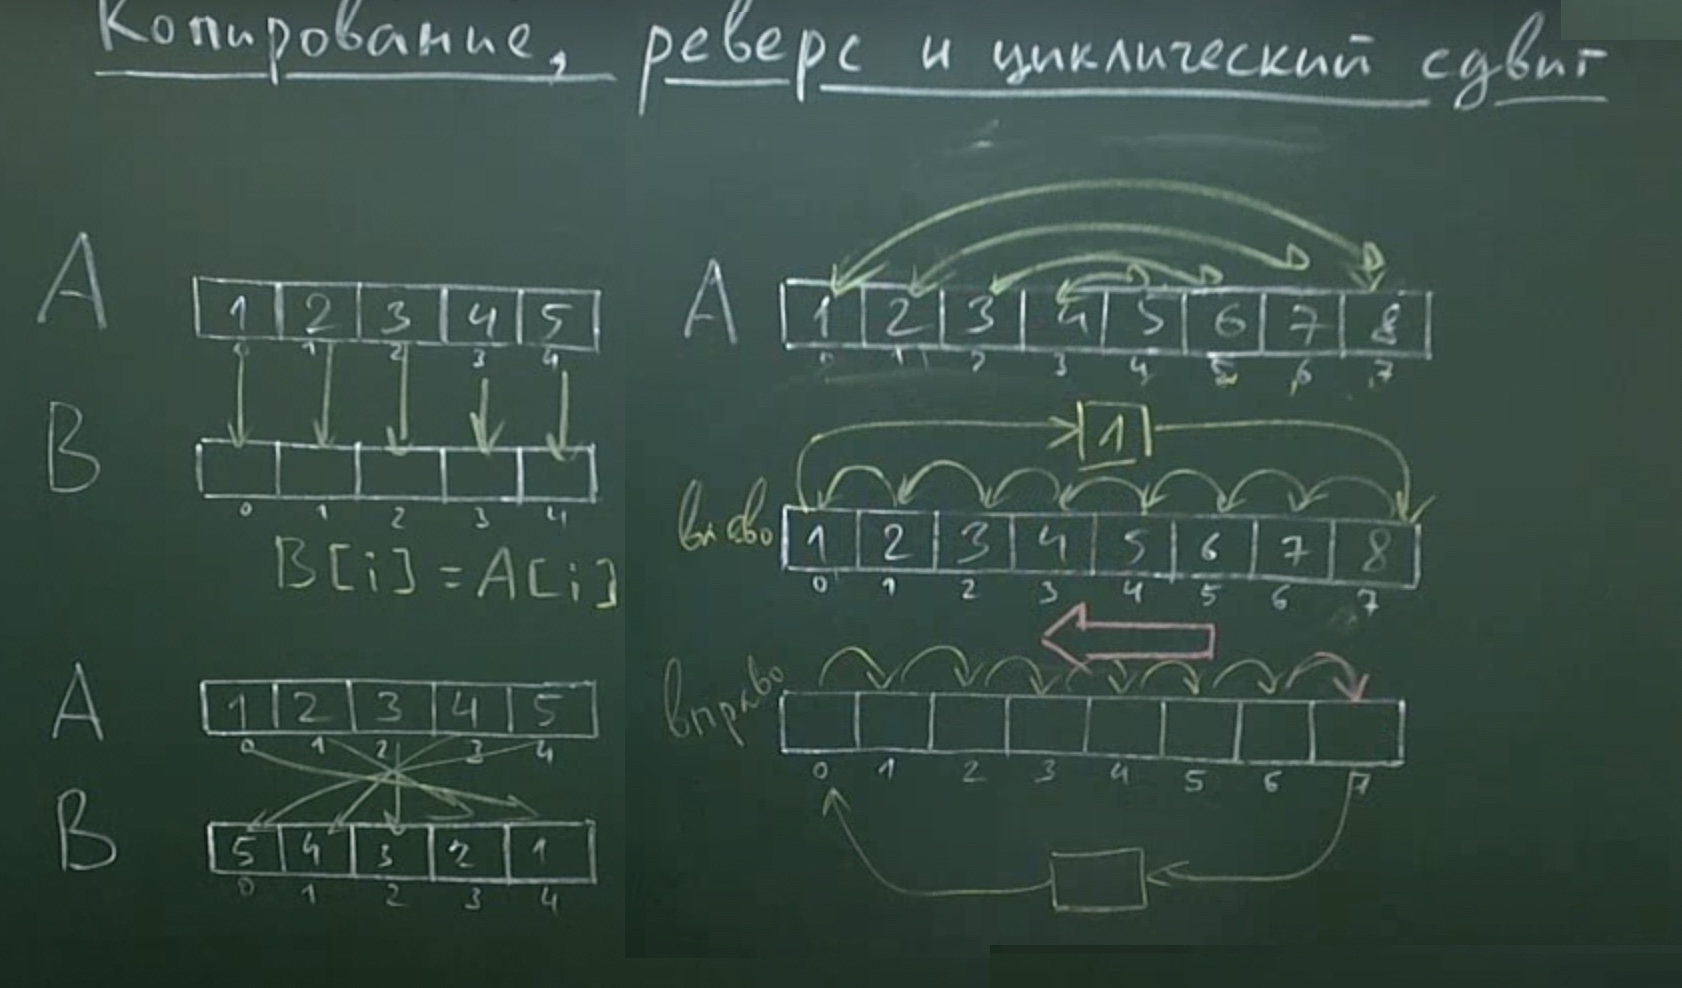 Копирование, реверс и циклический сдвиг
A
1 2 3 4 5
0 1 2 3 4
B
0 1 2 3 4
B[i] = A[i]
A
1 2 3 4 5
0 1 2 3 4
B
5 4 3 2 1
0 1 2 3 4
A
1 2 3 4 5 6 7 8
0 1 2 3 4 5 6 7
1
влево
1 2 3 4 5 6 7 8
0 1 2 3 4 5 6 7
вправо
0 1 2 3 4 5 6 7